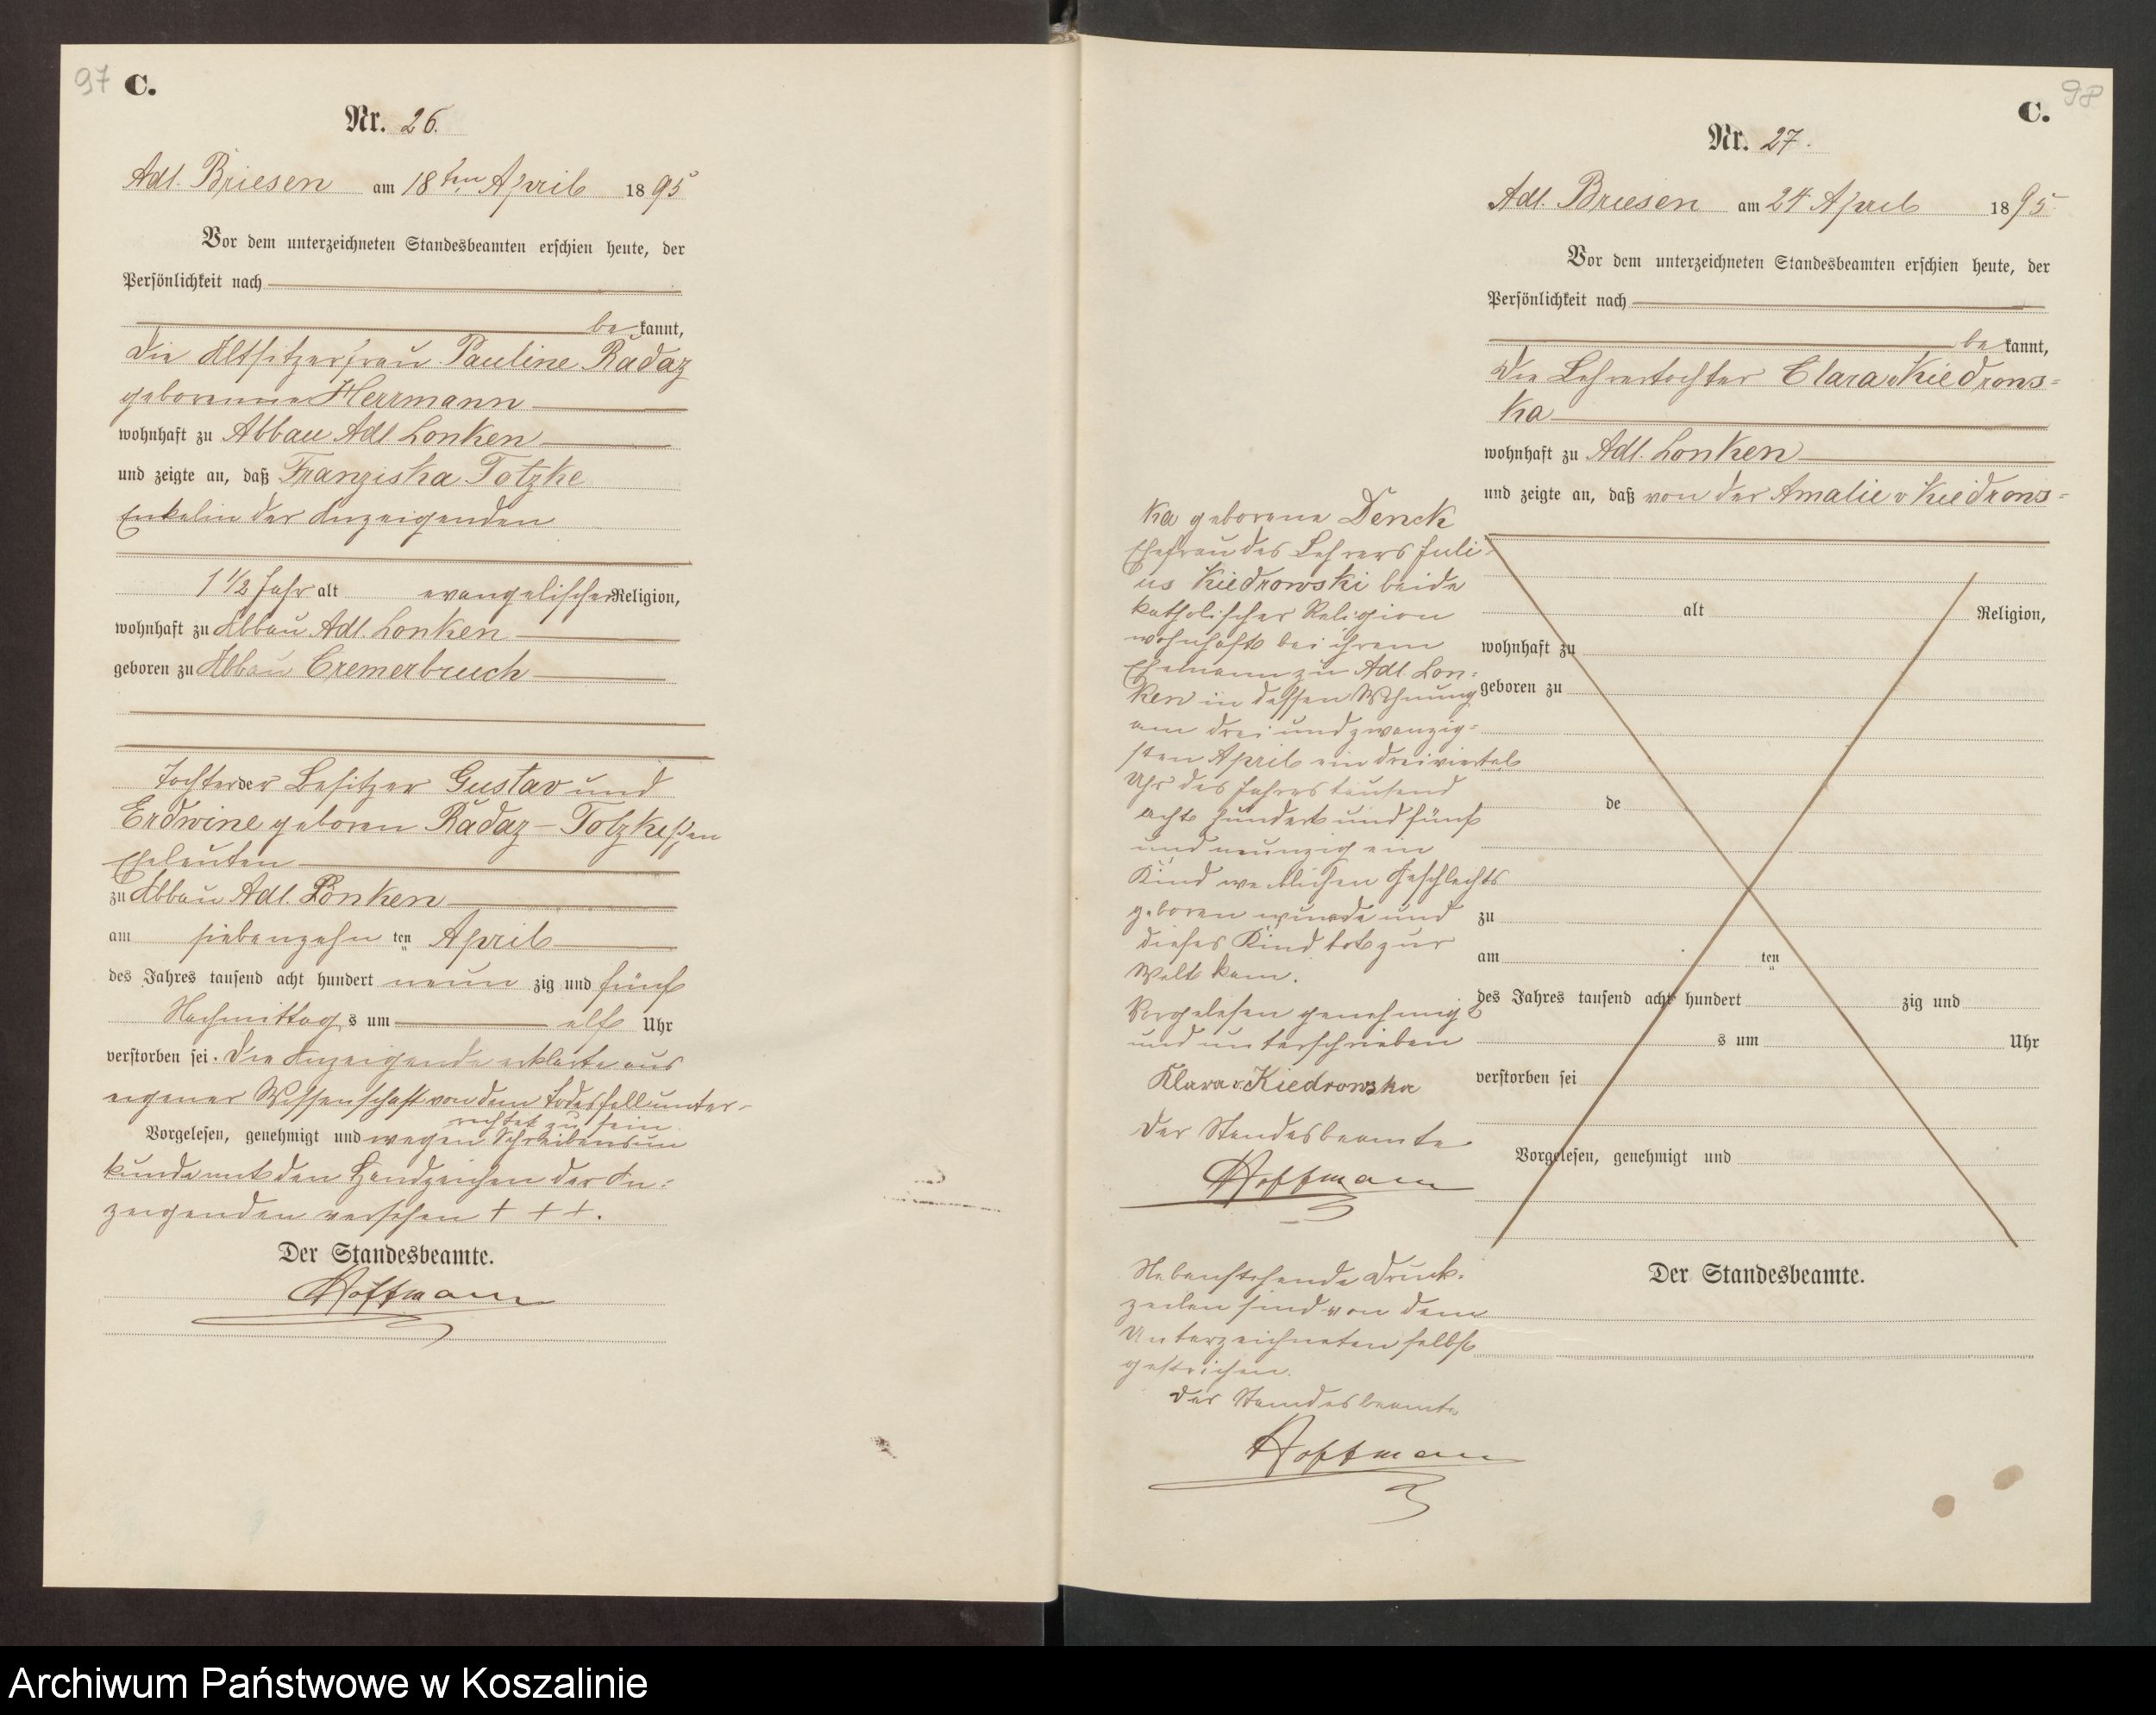 97 C.
Nr. 26.
Adl. Briesen am 18ten April 1895
Vor dem unterzeichneten Standesbeamten erschien heute, der
Persönlichkeit nach
be kannt,
die Altsitzerfrau Pauline Radaz
geborenne Herrmann
wohnhaft zu Abbau Adl Lonken
und zeigte an, daß Franziska Totzke
Enkelin der Anzeigenden
1 1/2 Jahr alt evangelischer Religion,
wohnhaft zu Abbau Adl. Lonken
geboren zu Abbau Cremerbruch
Tochter der Besitzer Gustav und
Erdwine geboren Radaz - Totzkeschen
Eheleuten
zu Abbau Adl. Lonken
am siebenzehn ten April
des Jahres tausend acht hundert neun zig und fünf
Nachmittag s um elf Uhr
verstorben sei. Die Anzeigende erklärte aus
eigener Wissenschaft von dem Todesfall unter-
richtet zu sein
Vorgelesen, genehmigt und wegen Schreibensun
kunde mit den Handzeichen der An-
zeigenden versehen + + +.
Der Standesbeamte.
Hoffmann
98
C.
Nr. 27.
Adl. Briesen am 24 April 1895
Vor dem unterzeichneten Standesbeamten erschien heute, der
Persönlichkeit nach
be kannt,
Die Lehrertochter Clara v Kiedrows=
ka
wohnhaft zu Adl. Lonken
und zeigte an, daß von der Amalie v Kiedrows=
ka geborene Denck
Ehefrau des Lehrers Juli-
us Kiedrowski beide
katholischer Religion
wohnhaft bei ihrem
Ehemann zu Adl. Lon-
ken in dessen Wohnung
am drei und zwanzig-
sten April ein dreiviertel
Uhr des Jahres tausend
acht hundert und fünf
und neunzig ein
Kind weiblichen Geschlechts
geboren wurde und
dieses Kind tot zur
Welt kam.
Vorgelesen genehmigt
und unterschrieben
Klara v Kiedrowska
Der Standesbeamte
Hoffmann
Nebenstehende Druck-
zeilen sind von dem
Unterzeichneten selbst
gestrichen.
Der Standesbeamte
Hoffmann
alt Religion,
wohnhaft zu
geboren zu
de
zu
am ten
des Jahres tausend acht hundert zig und
s um Uhr
verstorben sei
Vorgelesen, genehmigt und
Der Standesbeamte.
Archiwum Państwowe w Koszalinie